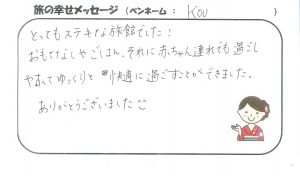 旅の幸せメッセージ (ペンネーム : Kou )
とってもステキな旅館でした!
おもてなしやごはん、それに赤ちゃん連れでも過ごし
やすくてゆっくりと快適に過ごすことができました。
ありがとうございました